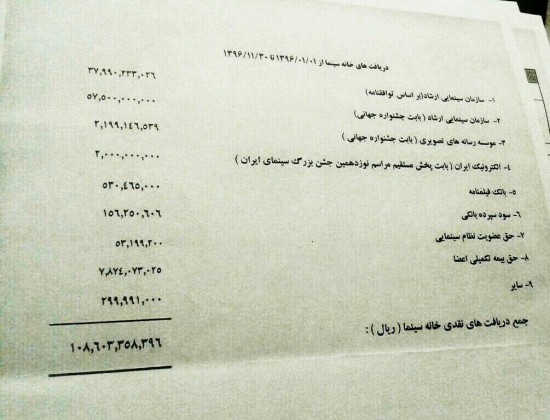 دریافت های خانه سینما از ۱۳۹۶/۰۱/۰۱ تا ۱۳۹۶/۱۱/۳۰
۱- سازمان سینمایی ارشاد(بر اساس توافقنامه) ۳۷,۹۹۰,۲۳۳,۰۲۶
۲- سازمان سینمایی ارشاد ( بابت جشنواره جهانی) ۵۷,۵۰۰,۰۰۰,۰۰۰
۳- موسسه رسانه های تصویری ( بابت جشنواره جهانی ) ۲,۱۹۹,۱۴۶,۵۳۹
۴- الکترونیک ایران ( بابت پخش مستقیم مراسم نوزدهمین جشن بزرگ سینمای ایران ) ۲,۰۰۰,۰۰۰,۰۰۰
۵- بانک فیلمنامه ۵۳۰,۴۶۵,۰۰۰
۶- سود سپرده بانکی ۱۵۶,۲۵۰,۶۰۶
۷- حق عضویت نظام سینمایی ۵۳,۱۹۹,۲۰۰
۸- حق بیمه تکمیلی اعضا ۷,۸۷۴,۰۷۳,۰۲۵
۹- سایر ۲۹۹,۹۹۱,۰۰۰
جمع دریافت های نقدی خانه سینما ( ریال ) : ۱۰۸,۶۰۳,۳۵۸,۳۹۶